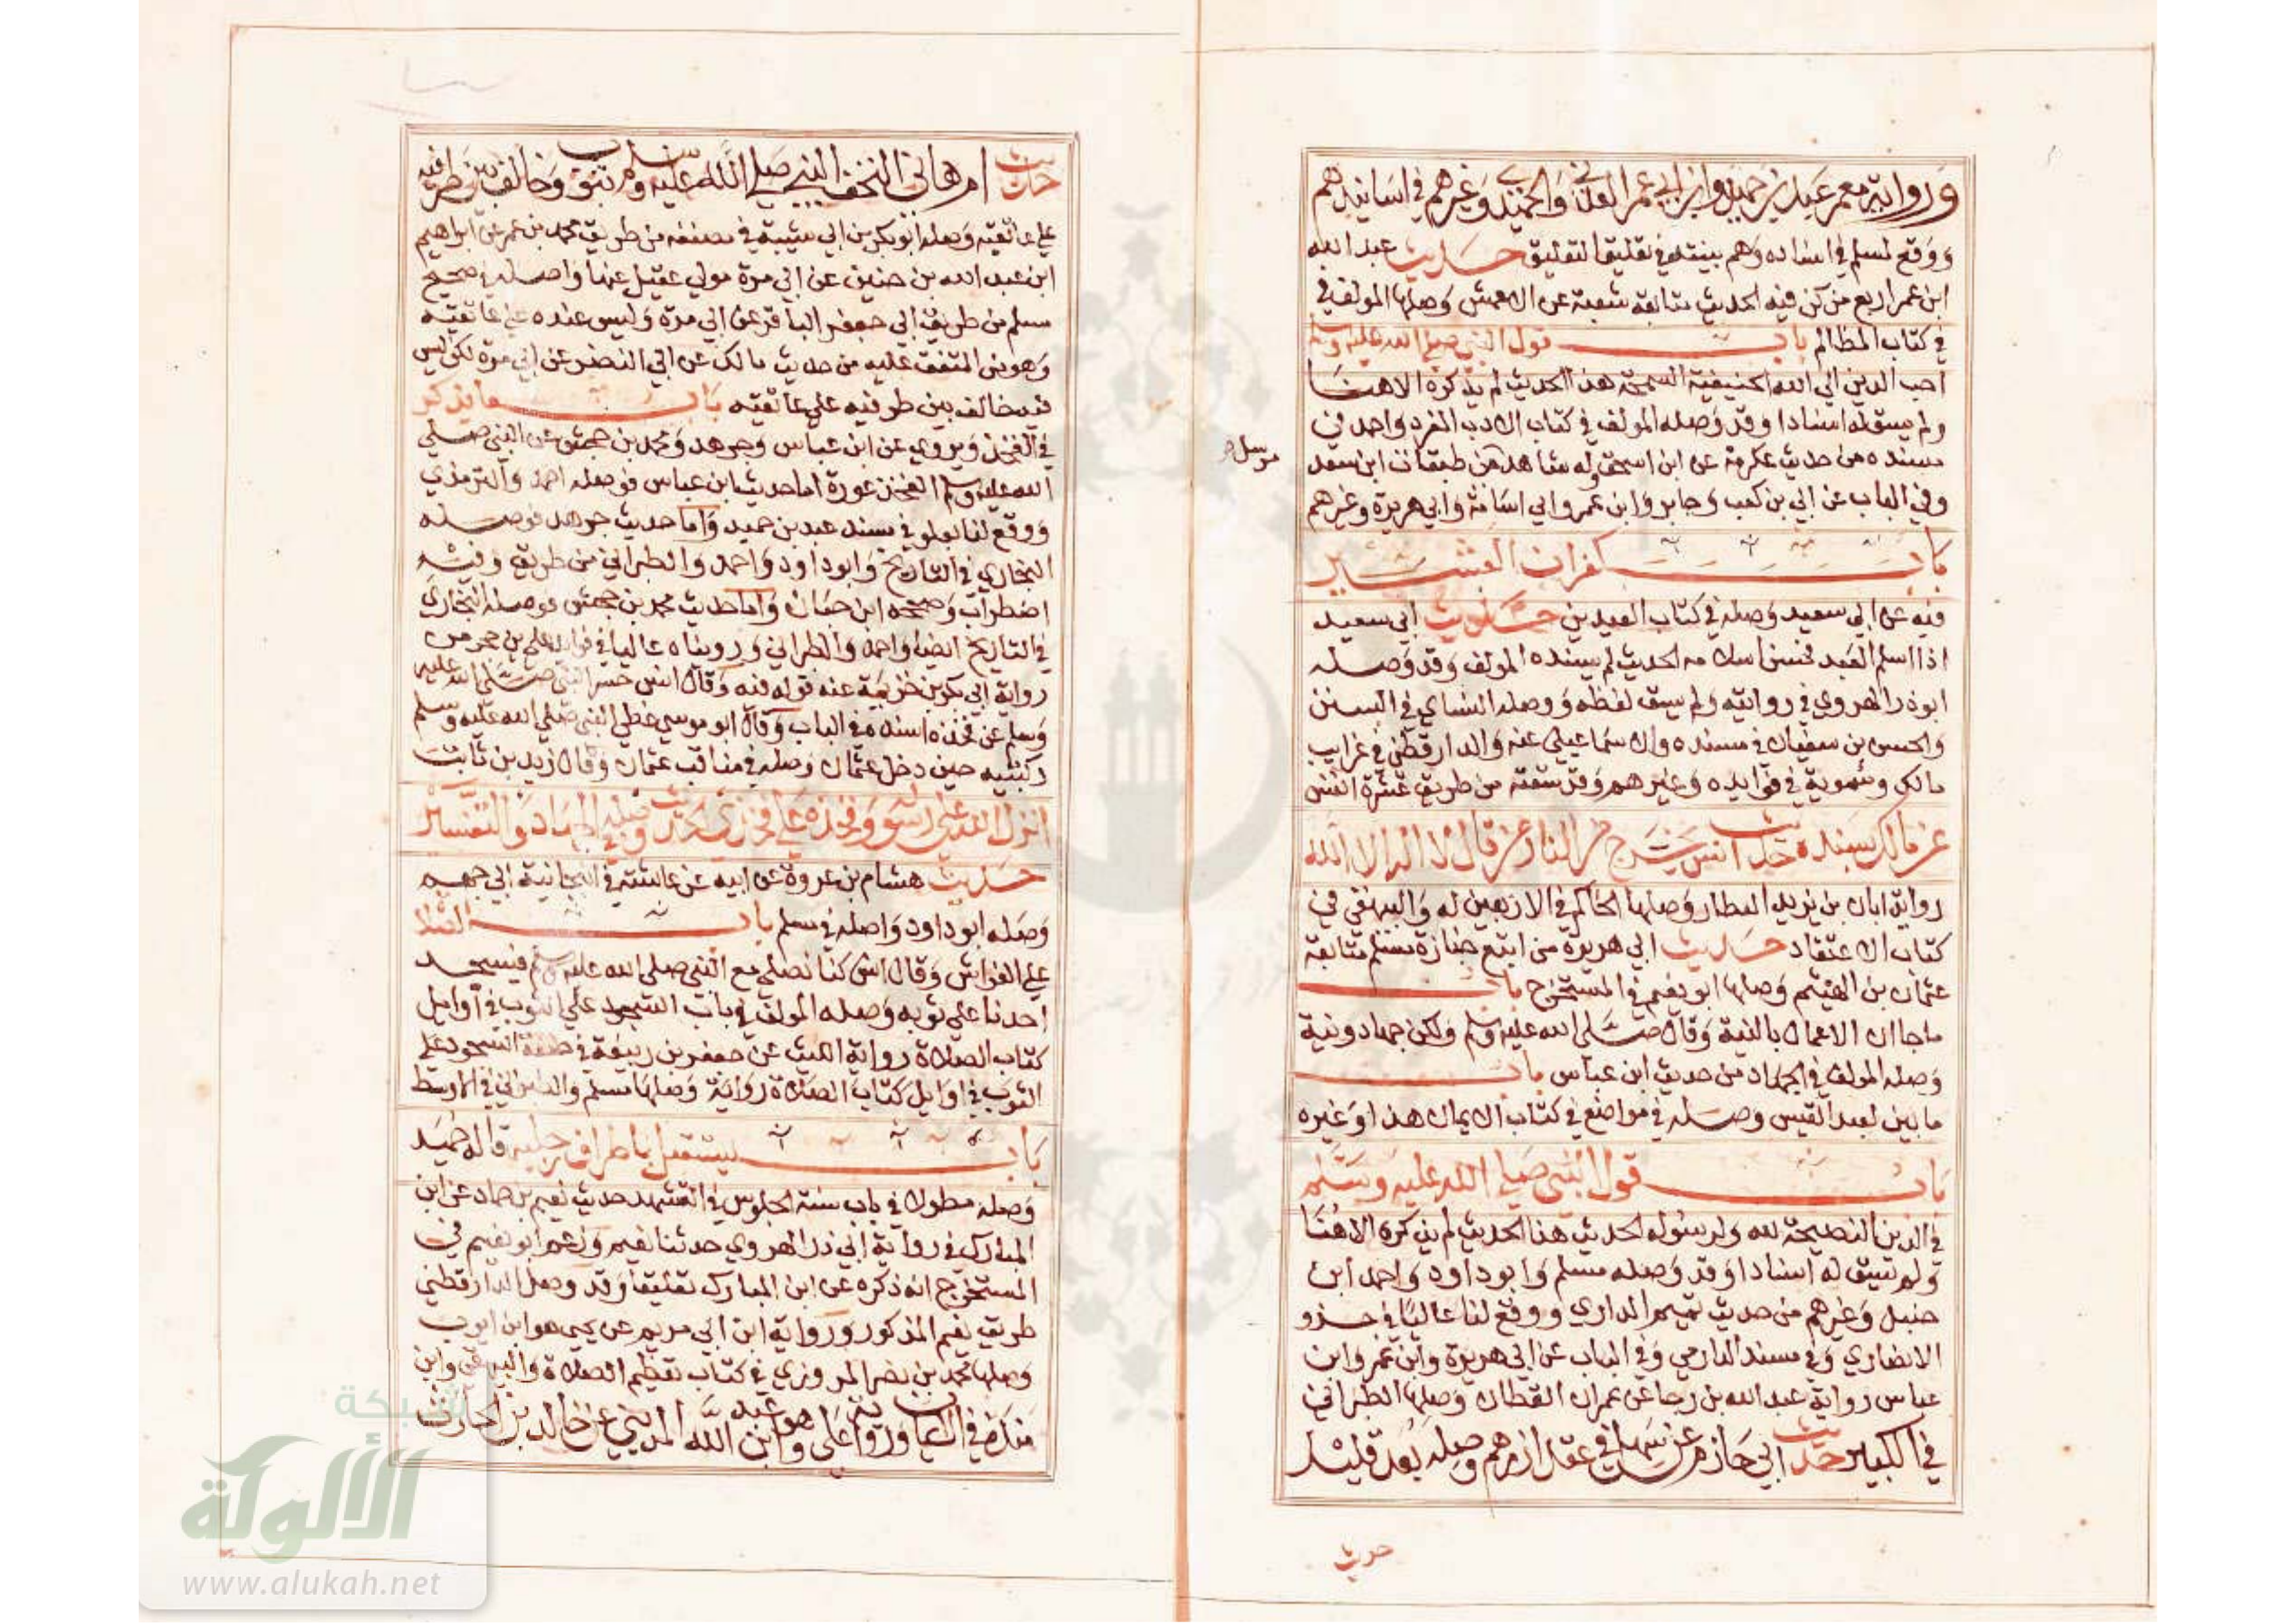 ورواية معمر عبد بن حميد وابن ابي عمر العدني والحميدي وغيرهم في اسانيدهم
ووقع لمسلم في اسناده وهم بينته في تعليق التعليق حديث عبد الله
ابن عمر اربع من كن فيه الحديث متابعة شعبة عن الاعمش وصلها المولف في
في كتاب المظالم باب قول النبي صلى الله عليه وسلم
احب الدين الي الله الحنيفية السمحة هذا الحديث لم يذكره الا هنا
ولم يسق له اسنادا وقد وصله المولف في كتاب الادب المفرد واحمد في
مسنده من حديث عكرمة عن ابن اسحق وله شاهد من طبقات ابن سعد
مرسل
وفي الباب عن ابي بن كعب وجابر وابن عمر وابي امامة وابي هريرة وغيرهم
باب كفران العشير
فيه عن ابي سعيد وصله في كتاب العيدين حديث ابي سعيد
اذا اسلم العبد فحسن اسلامه الحديث لم يسنده المولف وقد وصله
ابو ذر الهروي في روايته ولم يسق لفظه ووصله النساي في السنن
والحسن بن سفيان في مسنده والاسماعيلي عنه والدارقطني في غرايب
مالك وسموية في فوايده وغيرهم وقد سقته من طريق عشرة انفس
عن مالك بسنده حديث انس يخرج من النار من قال لا اله الا الله
رواية ابان بن يزيد العطار وصلها الحاكم في الاربعين له والبيهقي في
كتاب الاعتقاد حديث ابي هريرة من اتبع جنازة مسلم متابعة
عثمان بن الهيثم وصلها ابو نعيم في المستخرج باب
ماجا ان الاعمال بالنية وقال صلى الله عليه وسلم ولكن جهاد ونية
وصله المولف في الجهاد من حديث ابن عباس باب
ما بين لعبد القيس وصله في مواضع في كتاب الايمان هذا وغيره
باب قول النبي صلى الله عليه وسلم
في الدين النصيحة لله ولرسوله الحديث هذا الحديث لم يذكره الا هنا
ولم يسق له اسنادا وقد وصله مسلم وابو داود واحمد ابن
حنبل وغيرهم من حديث تميم الداري ووقع لنا عاليا في جزو
الانصاري وفي مسند الدارمي وفي الباب عن ابي هريرة وابن عمر وابن
عباس رواية عبد الله بن رجا عن عمران القطان وصلها الطبراني
في الكبير حديث ابي حازم عن سهل في عقد ازرهم وصله بعد قليل
حديث
حديث ام هاني التحف النبي صلى الله عليه وسلم بثوب وخالف بين طرفيه
علي عاتقيه وصله ابو بكر بن ابي شيبة في مصنفه من طريق محمد بن عمر عن ابراهيم
ابن عبد الله بن حنين عن ابي مرة مولي عقيل عنها واصله في صحيح
مسلم من طريق ابي جعفر الباقر عن ابي مرة وليس عنده علي عاتقيه
وهو في المتفق عليه من حديث مالك عن ابي النضر عن ابي مرة لكن ليس
فيه خالف بين طرفيه علي عاتقيه باب ما يذكر
في الفخذ ويروي عن ابن عباس وجرهد ومحمد بن جحش عن النبي صلى
الله عليه وسلم الفخذ عورة اما حديث ابن عباس فوصله احمد والترمذي
ووقع لنا بعلو في مسند عبد بن حميد واما حديث جرهد فوصله
البخاري في التاريخ وابو داود واحمد والطبراني من طريق وفيه
اضطراب وصححه ابن حبان واما حديث محمد بن جحش فوصله البخاري
في التاريخ ايضا واحمد والطبراني ورويناه عاليا في فوايد علي بن حجر من
رواية ابي بكر بن خزيمة عنه قوله فيه وقال انس حسر النبي صلى الله عليه
وسلم عن فخذه اسنده في الباب وقال ابو موسي غطي النبي صلى الله عليه وسلم
ركبتيه حين دخل عثمان وصله في مناقب عثمان وقال زيد بن ثابت
انزل الله علي رسوله وفخذه علي فخذي الحديث وصله في الجهاد والتفسير
حديث هشام بن عروة عن ابيه عن عائشة في انبجانية ابي جهم
وصله ابو داود واصله في مسلم باب الصلاة
علي الفراش وقال انس كنا نصلي مع النبي صلى الله عليه وسلم فيسجد
احدنا علي ثوبه وصله المولف في باب السجود علي الثوب في اوايل
كتاب الصلاة رواية الليث عن جعفر بن ربيعة في السجود علي
الثوب في اوايل كتاب الصلاة رواية وصلها مسلم والطبراني في الاوسط
باب يستقبل باطراف رجليه قاله حميد
وصله مطولا في باب سنة الجلوس في التشهد حديث نعيم بن حماد عن ابن
المبارك في رواية ابي ذر الهروي حدثنا نعيم وزعم ابو نعيم في
المستخرج انه ذكره عن ابن المبارك تعليقا وقد وصل الدارقطني
طريق نعيم المذكور ورواية ابن ابي مريم عن يحيي هو ابن ايوب
وصلها محمد بن نصر المروزي في كتاب تعظيم الصلاة والبيهقي وابن
منده في الايمان ورواية علي هو ابن عبد الله المديني عن خالد بن الحارث
شبكة
الألوكة
www.alukah.net